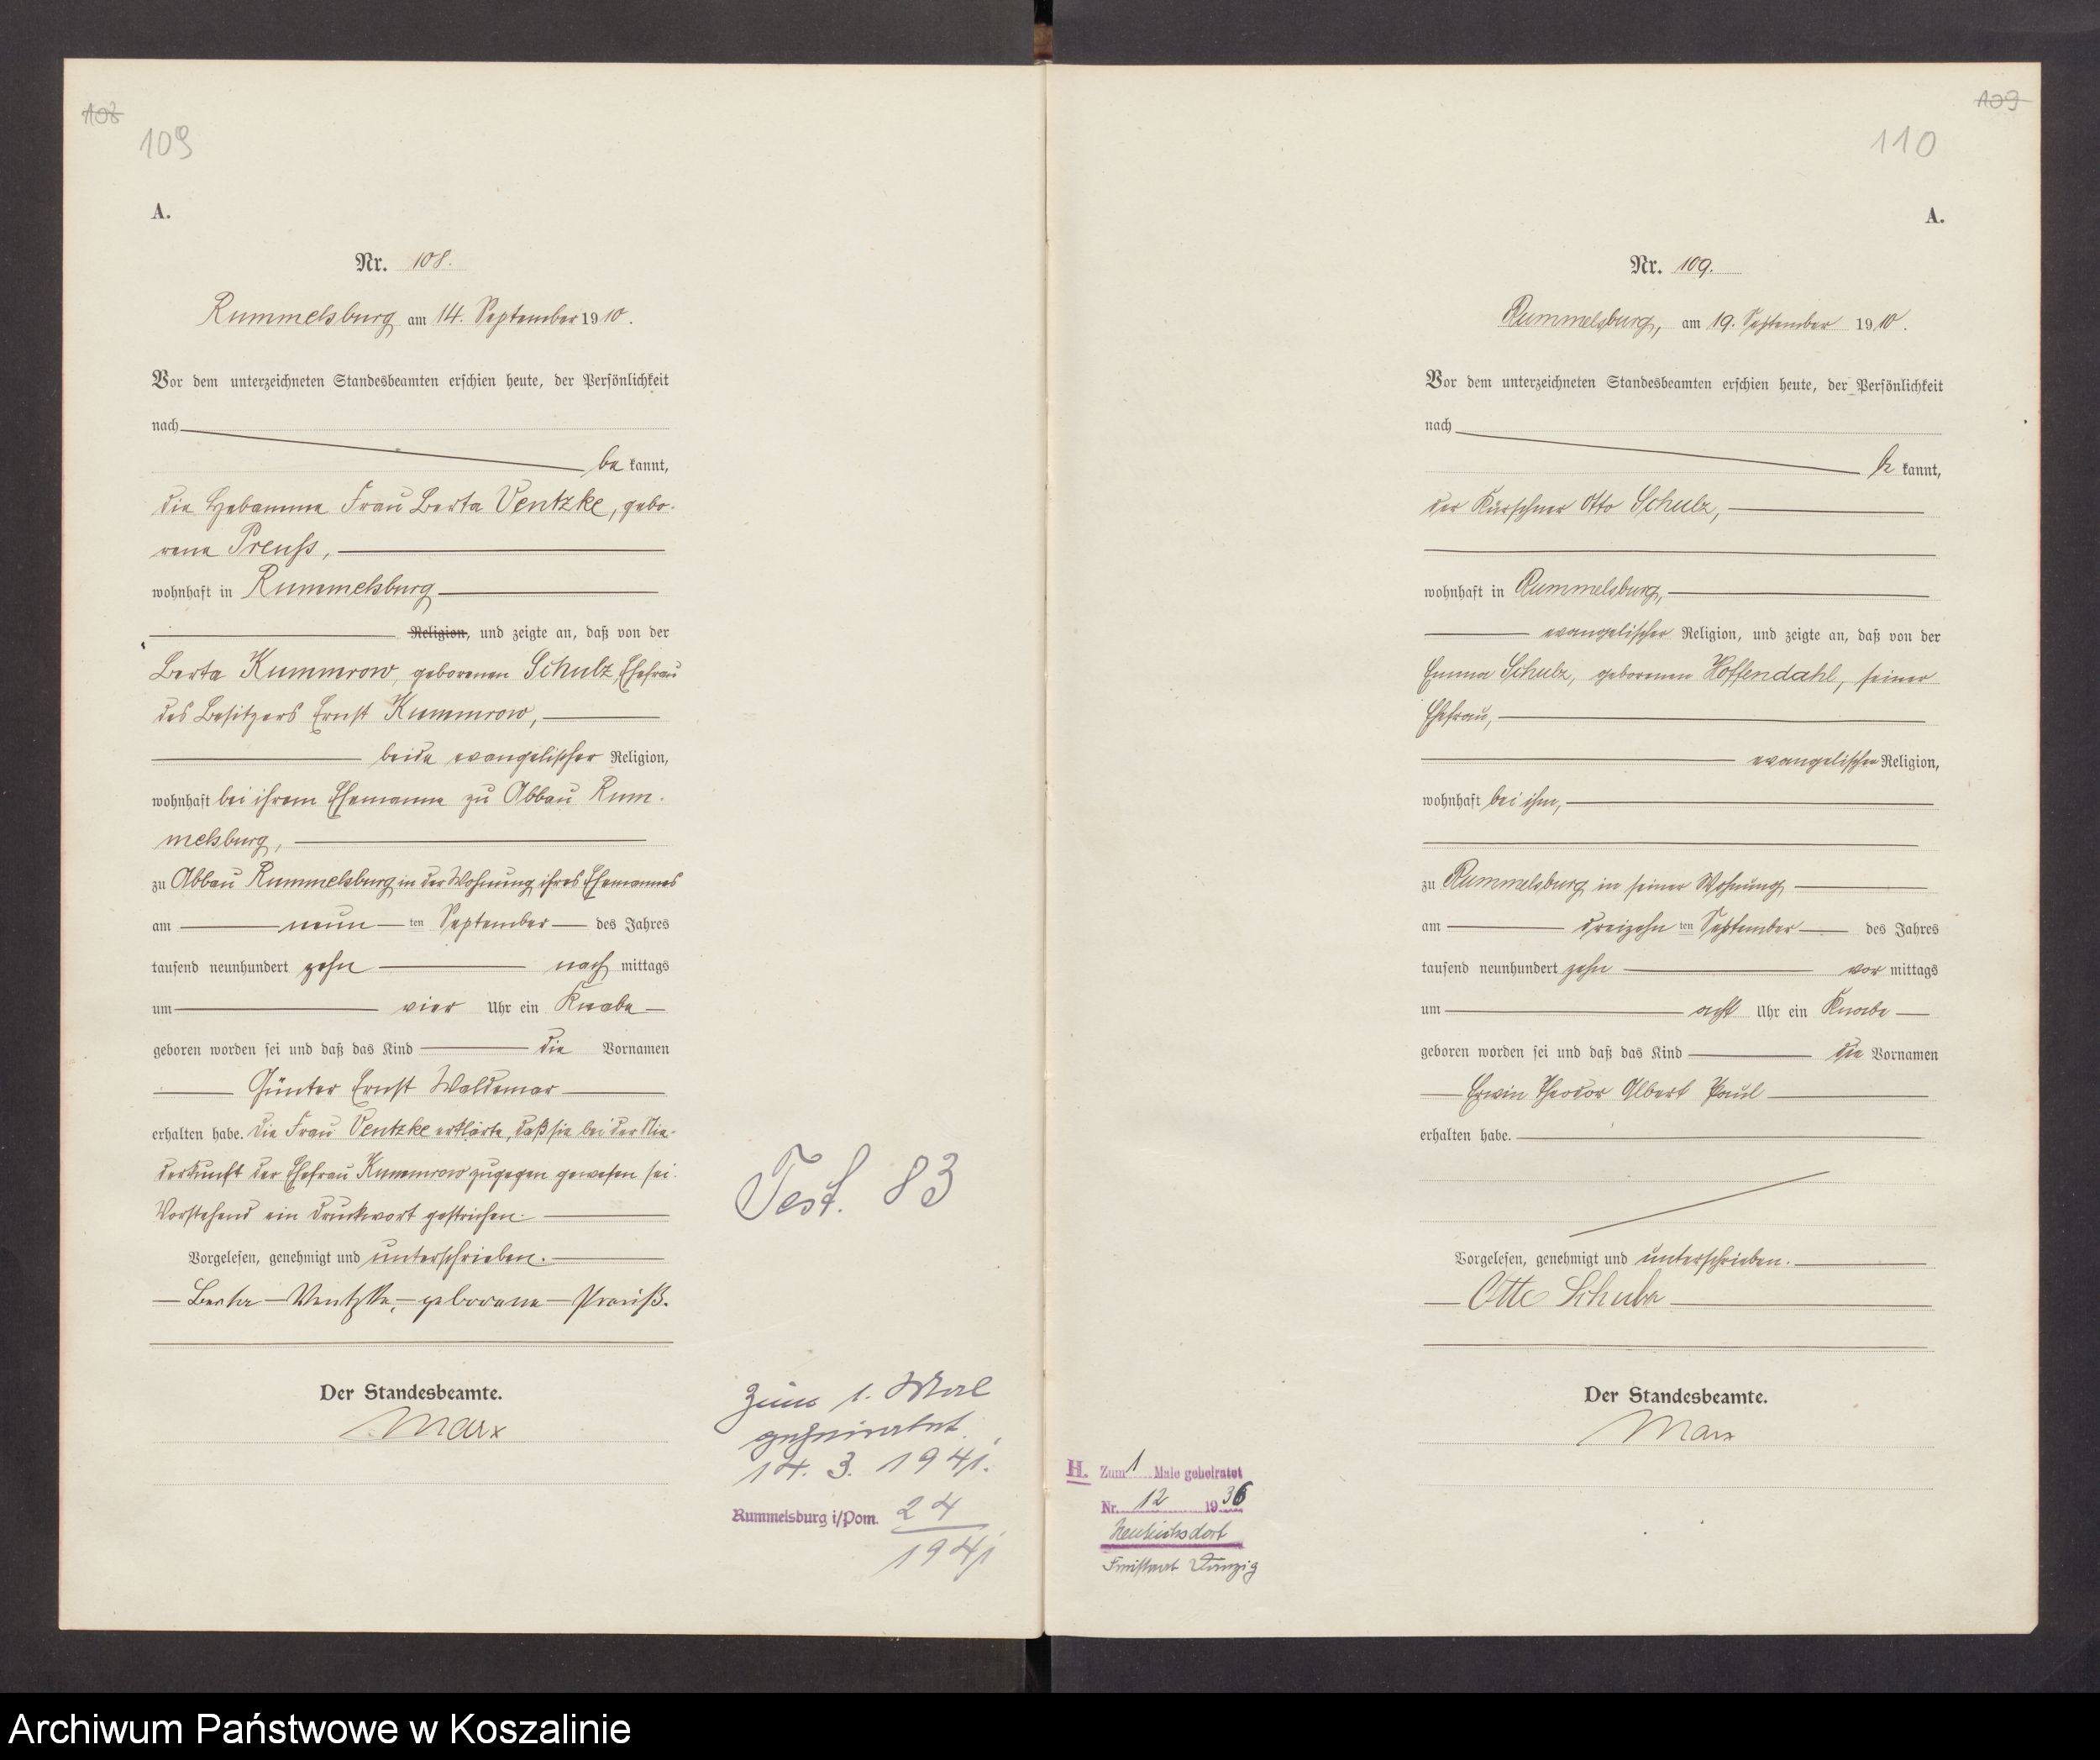 108
109
A.
Nr. 108.
Rummelsburg am 14. September 1910.
Vor dem unterzeichneten Standesbeamten erschien heute, der Persönlichkeit
nach
be kannt,
die Hebamme Frau Berta Ventzke, gebo-
rene Preuss,
wohnhaft in Rummelsburg
Religion, und zeigte an, daß von der
Berta Kummrow, geborenen Schulz, Ehefrau
des Besitzers Ernst Kummrow,
beide evangelischer Religion,
wohnhaft bei ihrem Ehemanne zu Abbau Rum-
melsburg,
zu Abbau Rummelsburg in der Wohnung ihres Ehemannes
am neun ten September des Jahres
tausend neunhundert zehn nach mittags
um vier Uhr ein Knabe
geboren worden sei und daß das Kind die Vornamen
Günter Ernst Waldemar
erhalten habe. Die Frau Ventzke erklärte, daß sie bei der Nie-
derkunft der Ehefrau Kummrow zugegen gewesen sei.
Vorstehend ein Druckwort gestrichen.
Vorgelesen, genehmigt und unterschrieben.
Berta Ventzke, geborene Preuß.
Der Standesbeamte.
Marx
Test. 83
Zum 1. Mal
geheiratet
14. 3. 1941.
Rummelsburg i/Pom. 24
1941
109
110
A.
Nr. 109.
Rummelsburg, am 19. September 1910.
Vor dem unterzeichneten Standesbeamten erschien heute, der Persönlichkeit
nach
be kannt,
der Kürschner Otto Schulz,
wohnhaft in Rummelsburg,
evangelischer Religion, und zeigte an, daß von der
Emma Schulz, geborenen Hoffendahl, seiner
Ehefrau,
evangelischer Religion,
wohnhaft bei ihm,
zu Rummelsburg in seiner Wohnung
am dreizehn ten September des Jahres
tausend neunhundert zehn vor mittags
um acht Uhr ein Knabe
geboren worden sei und daß das Kind die Vornamen
Erwin Theodor Albert Paul
erhalten habe.
Vorgelesen, genehmigt und unterschrieben.
Otto Schulz
Der Standesbeamte.
Marx
H. Zum 1 Male geheiratet
Nr. 12 1936
Freistaat Danzig
Archiwum Państwowe w Koszalinie